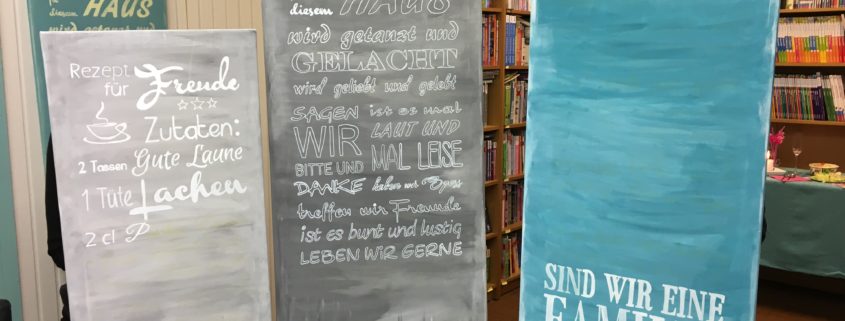 HAUS
diesem
wird getanzt und
Rezept
für Freude
Zutaten:
2 Tassen Gute Laune
1 Tüte Lachen
2 cl P
diesem HAUS
wird getanzt und
GELACHT
wird geliebt und gelebt
SAGEN ist es mal
WIR LAUT UND
BITTE UND MAL LEISE
DANKE haben wir Spass
treffen wir Freunde
ist es bunt und lustig
LEBEN WiR GERNE
SIND WIR EINE